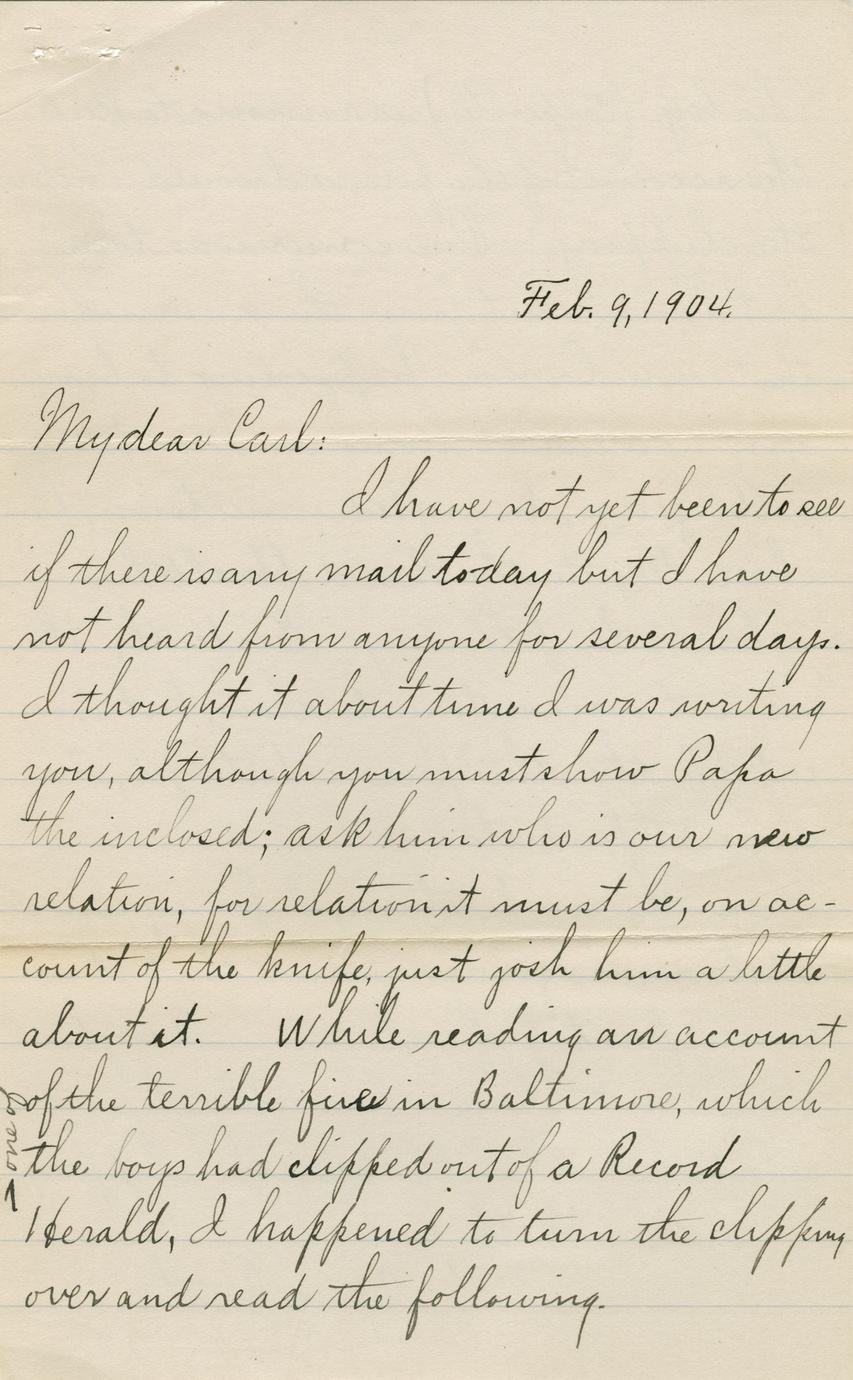 Feb. 9, 1904.
My dear Carl:
I have not yet been to see
if there is any mail today but I have
not heard from anyone for several days.
I thought it about time I was writing
you, although you must show Papa
the inclosed; ask him who is our new
relation, for relation it must be, on ac-
count of the knife, just josh him a little
about it. While reading an account
of the terrible fire in Baltimore, which
one of
the boys had clipped out of a Record
Herald, I happened to turn the clipping
over and read the following.